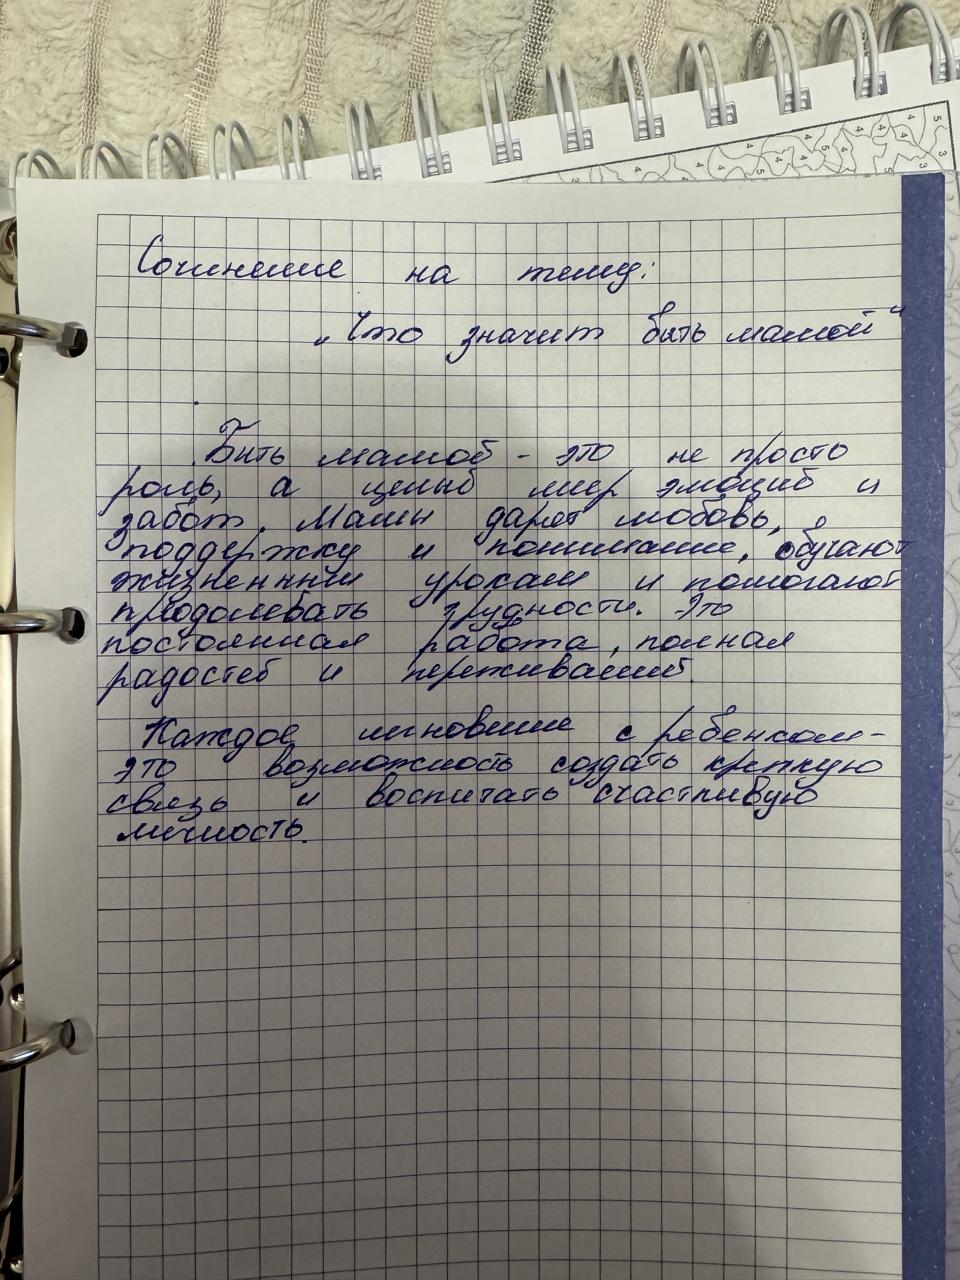 Сочинение на тему:
„Что значит быть мамой"
Быть мамой - это не просто
роль, а целый мир эмоций и
забот. Мамы дарят любовь,
поддержку и понимание, обучают
жизненным урокам и помогают
преодолевать трудности. Это
постоянная работа, полная
радостей и переживаний.
Каждое мгновение с ребенком-
это возможность создать крепкую
связь и воспитать счастливую
личность.